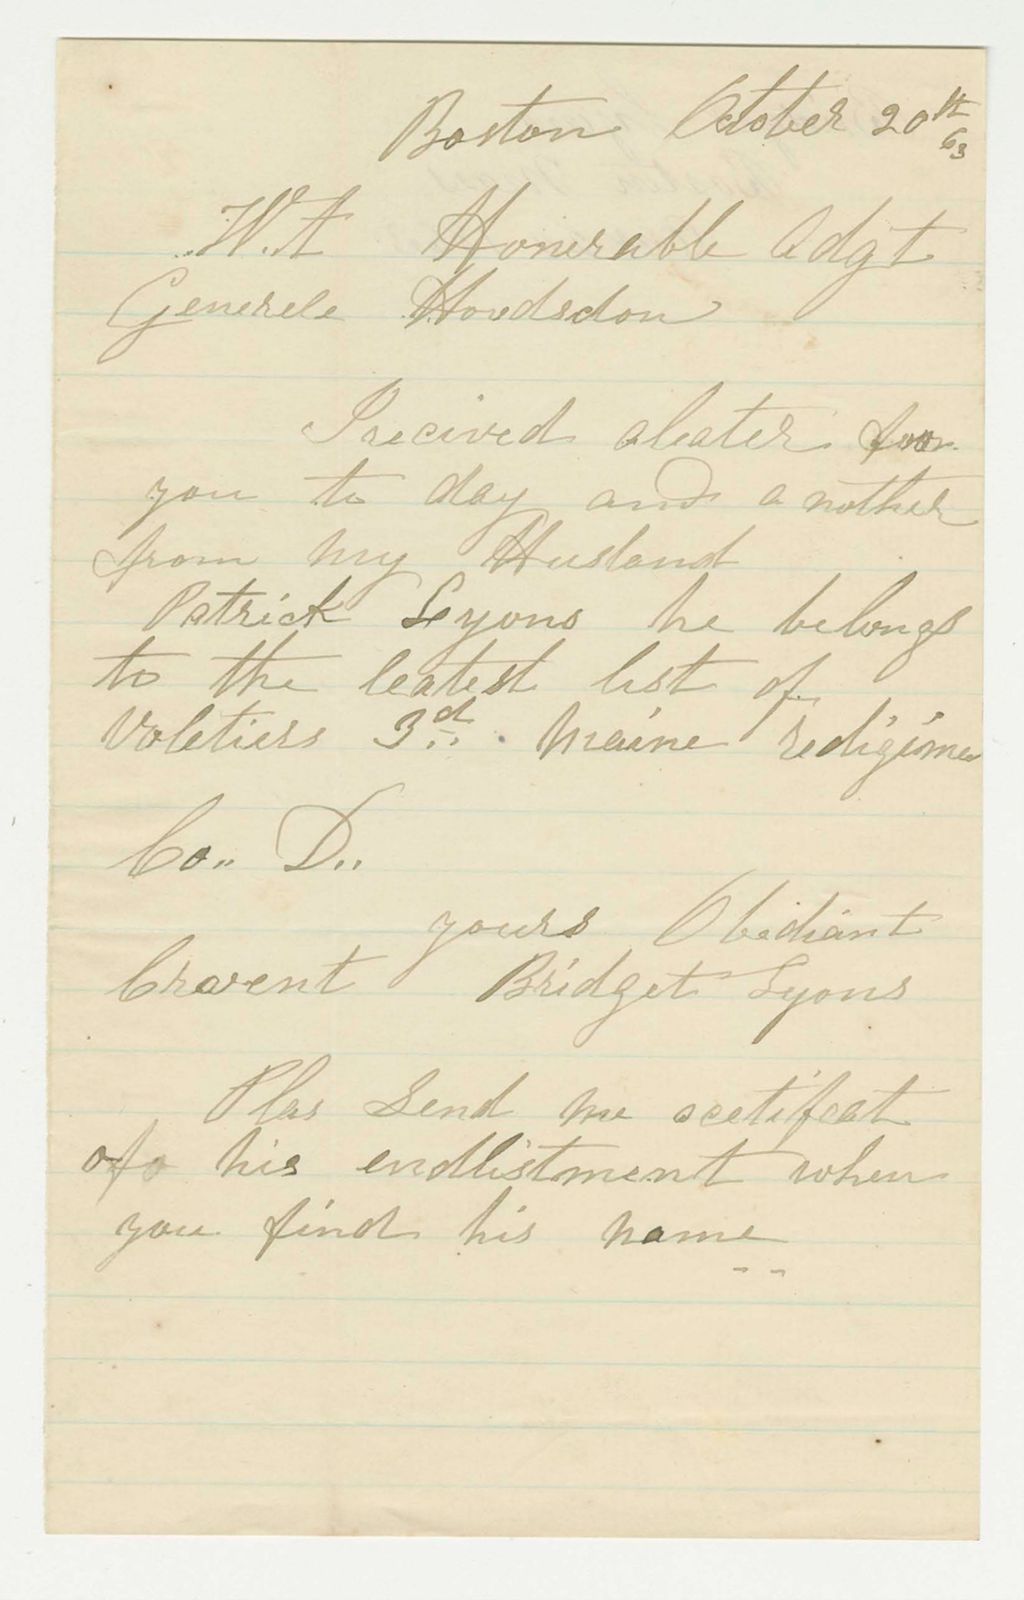 Boston October 20th 63
W. A Honerable Adgt
Generele Houdsdon
I recived aleater from
you to day and a nother
from my Husband
Patrick Lyons he belongs
to the leatest list of
Voletiers 3d Maine redigimen
Co. D..
yours Obidiant
Cravent Bridget Lyons
Plas Send me acetifcat
ofo his endlistment when
you find his name